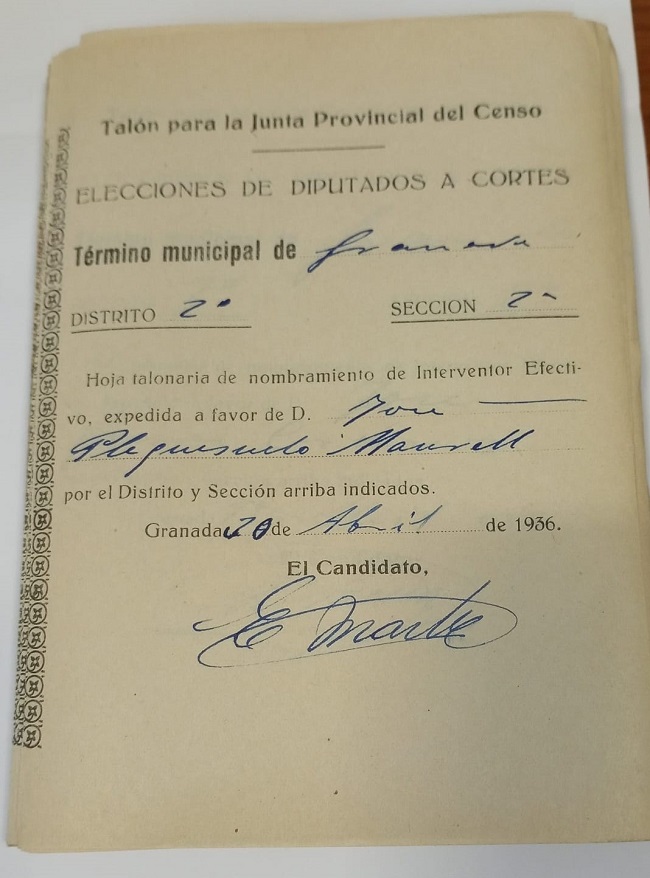 Talón para la Junta Provincial del Censo
ELECCIONES DE DIPUTADOS A CORTES
Término municipal de Granada
DISTRITO 2º SECCION 2ª
Hoja talonaria de nombramiento de Interventor Efecti-
vo, expedida a favor de D. Jose
Pleguesuelo
por el Distrito y Sección arriba indicados.
Granada 20 de Abril de 1936.
El Candidato,
E